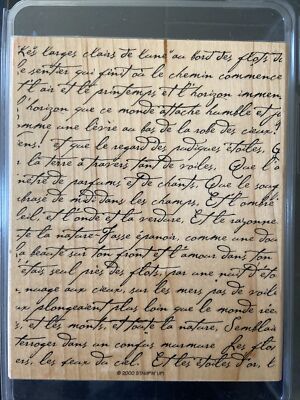 "Les larges clairs de lune" au bord des flots de
le sentier qui finit où le chemin commence
t l'air et le printemps et l'horizon immen
l'horizon que ce monde attache humble et jo
omme une lèvre au bas de la robe des cieux!
iens! et que le regard des pudiques étoiles, Q
r la terre à travers tant de voiles, Que l'a
nêtré de parfums et de chants, Que le souf
brasé de midi dans les champs, Et l'ombre
leil, et l'onde et la verdure, Et le rayonne
te la nature Fasse épanoir, comme une dou
la beauté sur ton front et l'amour dans ton
'étais seul près des flots, par une nuit d'éto
s nuage aux cieux, sur les mers pas de voile
ux plongeaient plus loin que le monde rée
s, et les monts, et toute la nature, Semblai
terroger dans un confus murmure Les flo
ers, les feux du ciel. Et les étoiles d'or, l
© 2000 STAMPIN' UP!